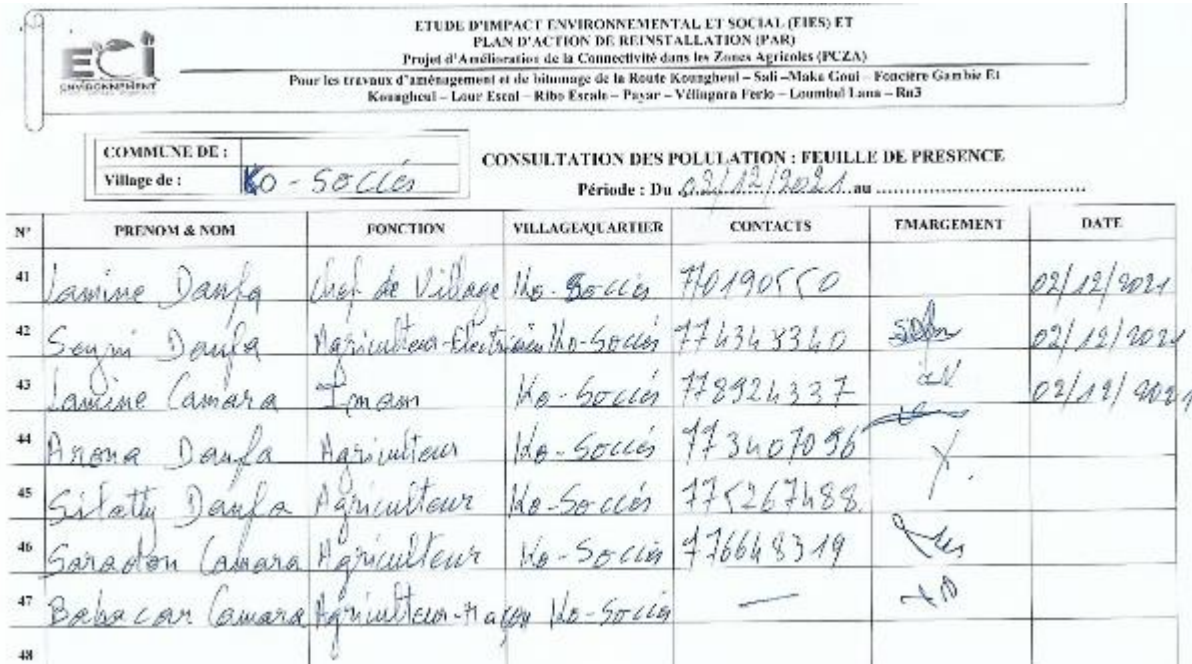 ECI
ENVIRONNEMENT
ETUDE D'IMPACT ENVIRONNEMENTAL ET SOCIAL (EIES) ET
PLAN D'ACTION DE REINSTALLATION (PAR)
Projet d'Amélioration de la Connectivité dans les Zones Agricoles (PCZA)
Pour les travaux d'aménagement et de bitumage de la Route Koungheul – Sali –Maka Goui – Foncière Gambie Et
Koungheul – Lour Escal – Ribo Escale – Payar – Vélingara Ferlo – Loumbel Lana – Rn3
COMMUNE DE :
Village de : Ko - Soccés
CONSULTATION DES POLULATION : FEUILLE DE PRESENCE
Période : Du 02/12/2021 au
N° PRENOM & NOM FONCTION VILLAGE/QUARTIER CONTACTS EMARGEMENT DATE
41 Lamine Danfa Chef de Village Ko-Soccés 770190550 02/12/2021
42 Seyni Danfa Agriculteur-Electricien Ko-Soccés 774348340 02/12/2021
43 Lamine Camara Imam Ko-Soccés 778924337 02/12/2021
44 Arona Danfa Agriculteur Ko-Soccés 773407096
45 Danfa Agriculteur Ko-Soccés 775267488
46 Camara Agriculteur Ko-Soccés 776648319
47 Babacar Camara Agriculteur-Maçon Ko-Soccés —
48